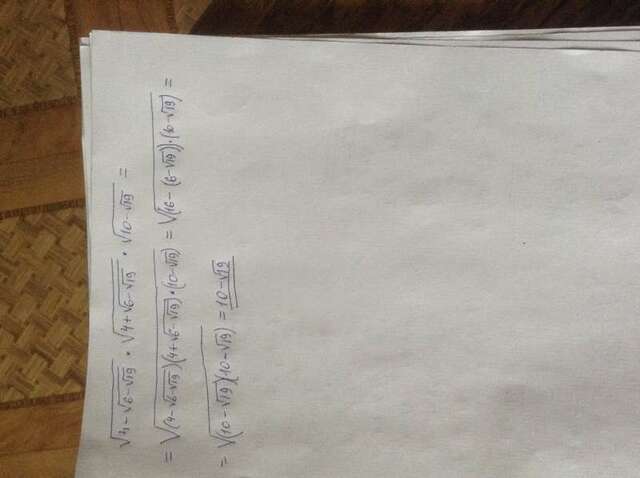 √(4-√(6-√19)) · √(4+√(6-√19)) · √(10-√19) =
= √((4-√(6-√19))(4+√(6-√19))·(10-√19)) = √((16-(6-√19))·(10-√19)) =
= √((10-√19)(10-√19)) = 10-√19